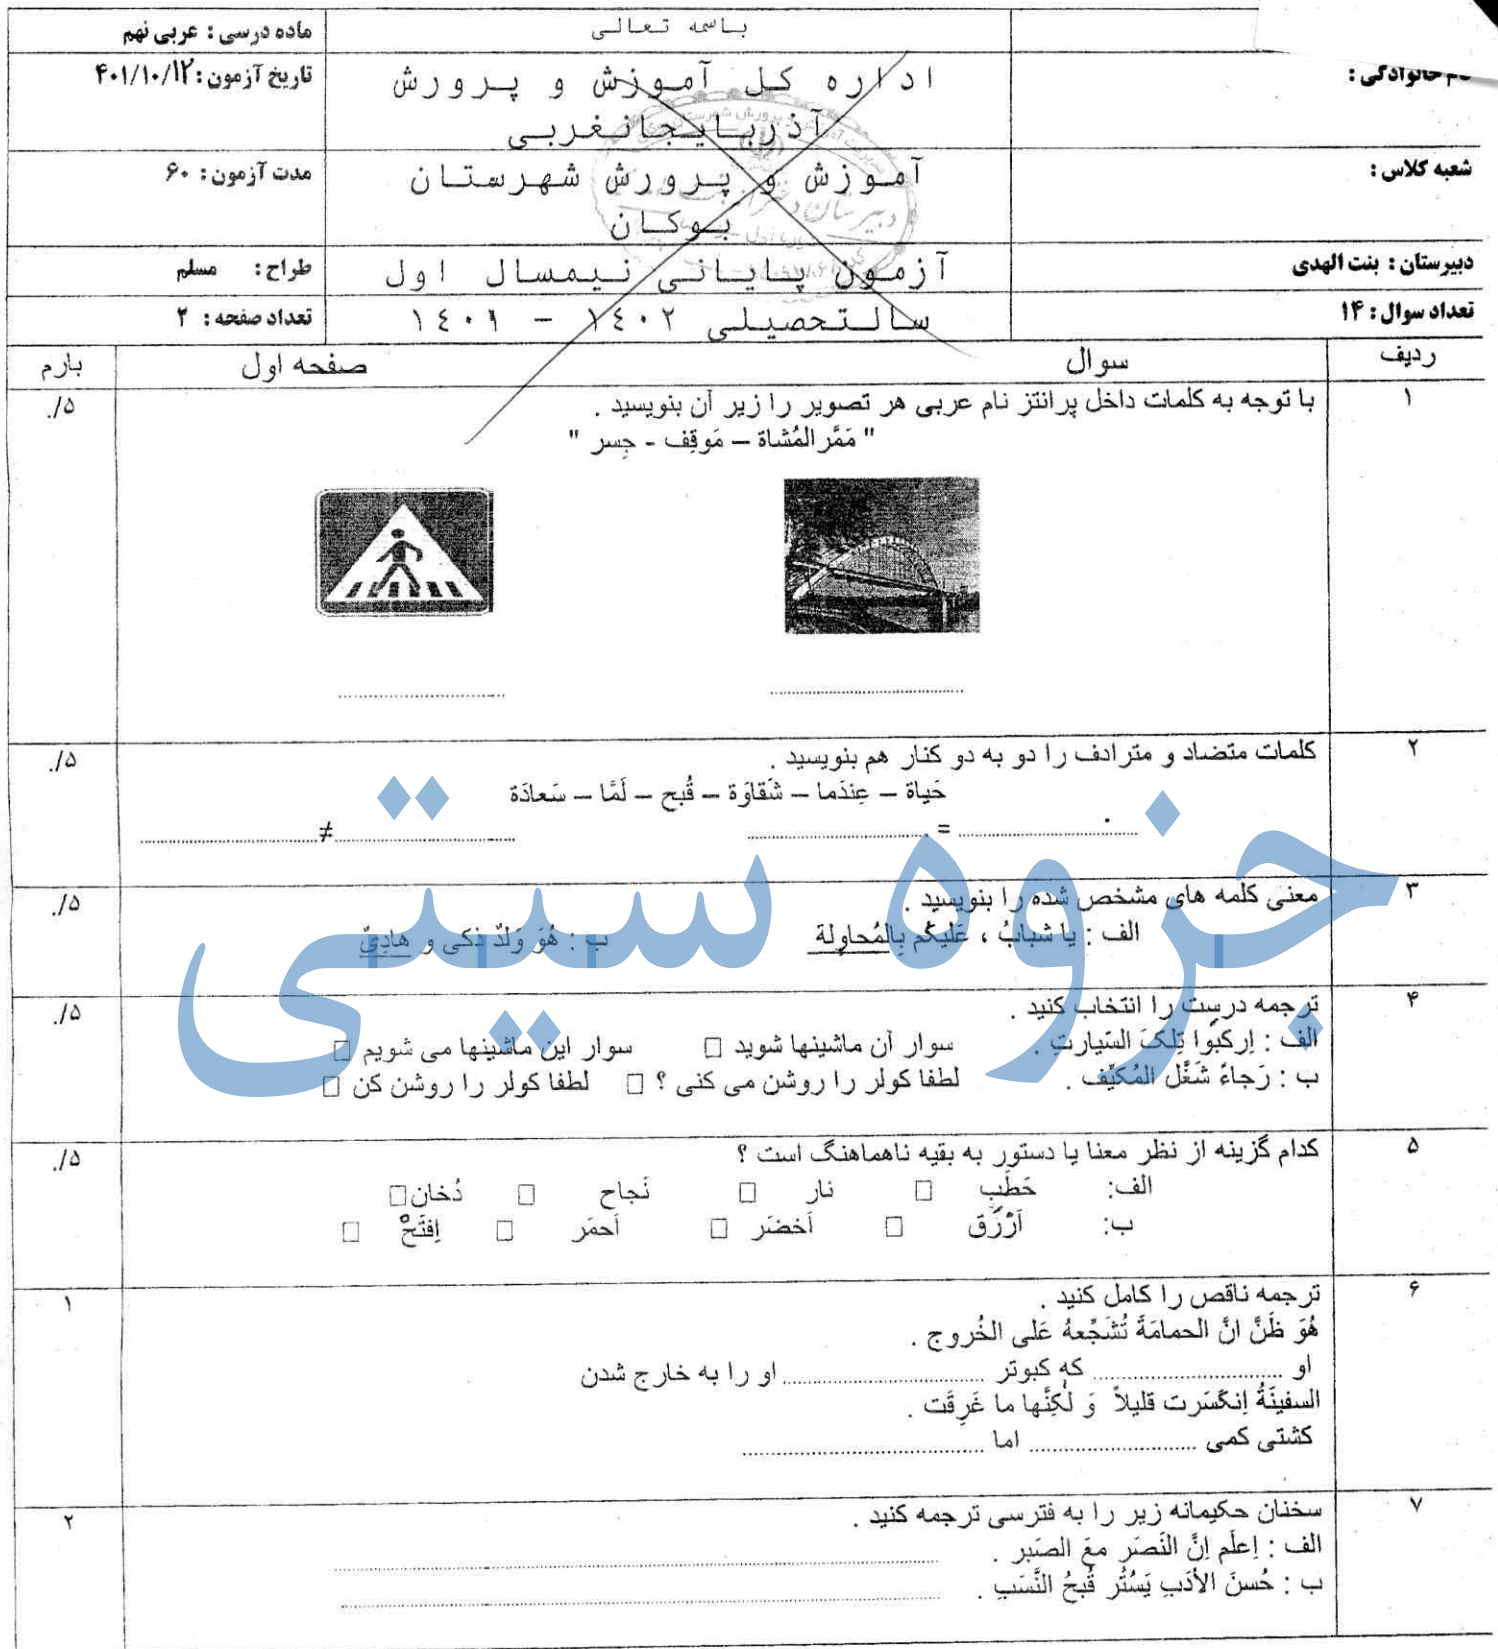 باسمه تعالی
ماده درسی : عربی نهم
نام خانوادگی :
اداره کل آموزش و پرورش
آذربایجانغربی
تاریخ آزمون: ۴۰۱/۱۰/۱۲
شعبه کلاس :
آموزش و پرورش شهرستان
بوکان
مدت آزمون: ۶۰
دبیرستان : بنت الهدی
آزمون پایانی نیمسال اول
طراح: مسلم
تعداد سوال : ۱۴
سالتحصیلی ۱٤۰۲ – ۱٤۰۱
تعداد صفحه : ۲
ردیف سوال صفحه اول بارم
۱ با توجه به کلمات داخل پرانتز نام عربی هر تصویر را زیر آن بنویسید . ./۵
" مَمَّر المُشاة – مَوقِف - جِسر "
۲ کلمات متضاد و مترادف را دو به دو کنار هم بنویسید . ./۵
حَیاة – عِندَما – شَقاوَة – قُبح – لَمَّا – سَعادَة
.................... = .................... .................... ≠ ....................
۳ معنی کلمه های مشخص شده را بنویسید . ./۵
الف : یا شبابُ ، عَلیکُم بِالمُحاوِلة ب : هُوَ وَلدٌ ذکی و هادِئٌ
۴ ترجمه درست را انتخاب کنید . ./۵
الف : اِرکَبُوا تِلکَ السَّیارتِ . سوار آن ماشینها شوید □ سوار این ماشینها می شویم □
ب : رَجاءً شَغَّل المُکیِّف . لطفا کولر را روشن می کنی ؟ □ لطفا کولر را روشن کن □
۵ کدام گزینه از نظر معنا یا دستور به بقیه ناهماهنگ است ؟ ./۵
الف: حَطَب □ نار □ نَجاح □ دُخان □
ب: اَزْرَق □ اَخضَر □ اَحمَر □ اِفتَحْ □
۶ ترجمه ناقص را کامل کنید . ۱
هُوَ ظَنَّ انَّ الحمامَةَ تُشَجِّعهُ عَلی الخُروج .
او .................... که کبوتر .................... او را به خارج شدن
السفینَةُ اِنکَسَرت قلیلاً وَ لٰکِنَّها ما غَرِقَت .
کشتی کمی .................... اما ....................
۷ سخنان حکیمانه زیر را به فترسی ترجمه کنید . ۲
الف : اِعلَم اِنَّ النَصَر معَ الصَبر . ....................
ب : حُسنَ الأدَبِ یَسُتُر قُبحُ النَّسَبِ . ....................
جزوه سیتی